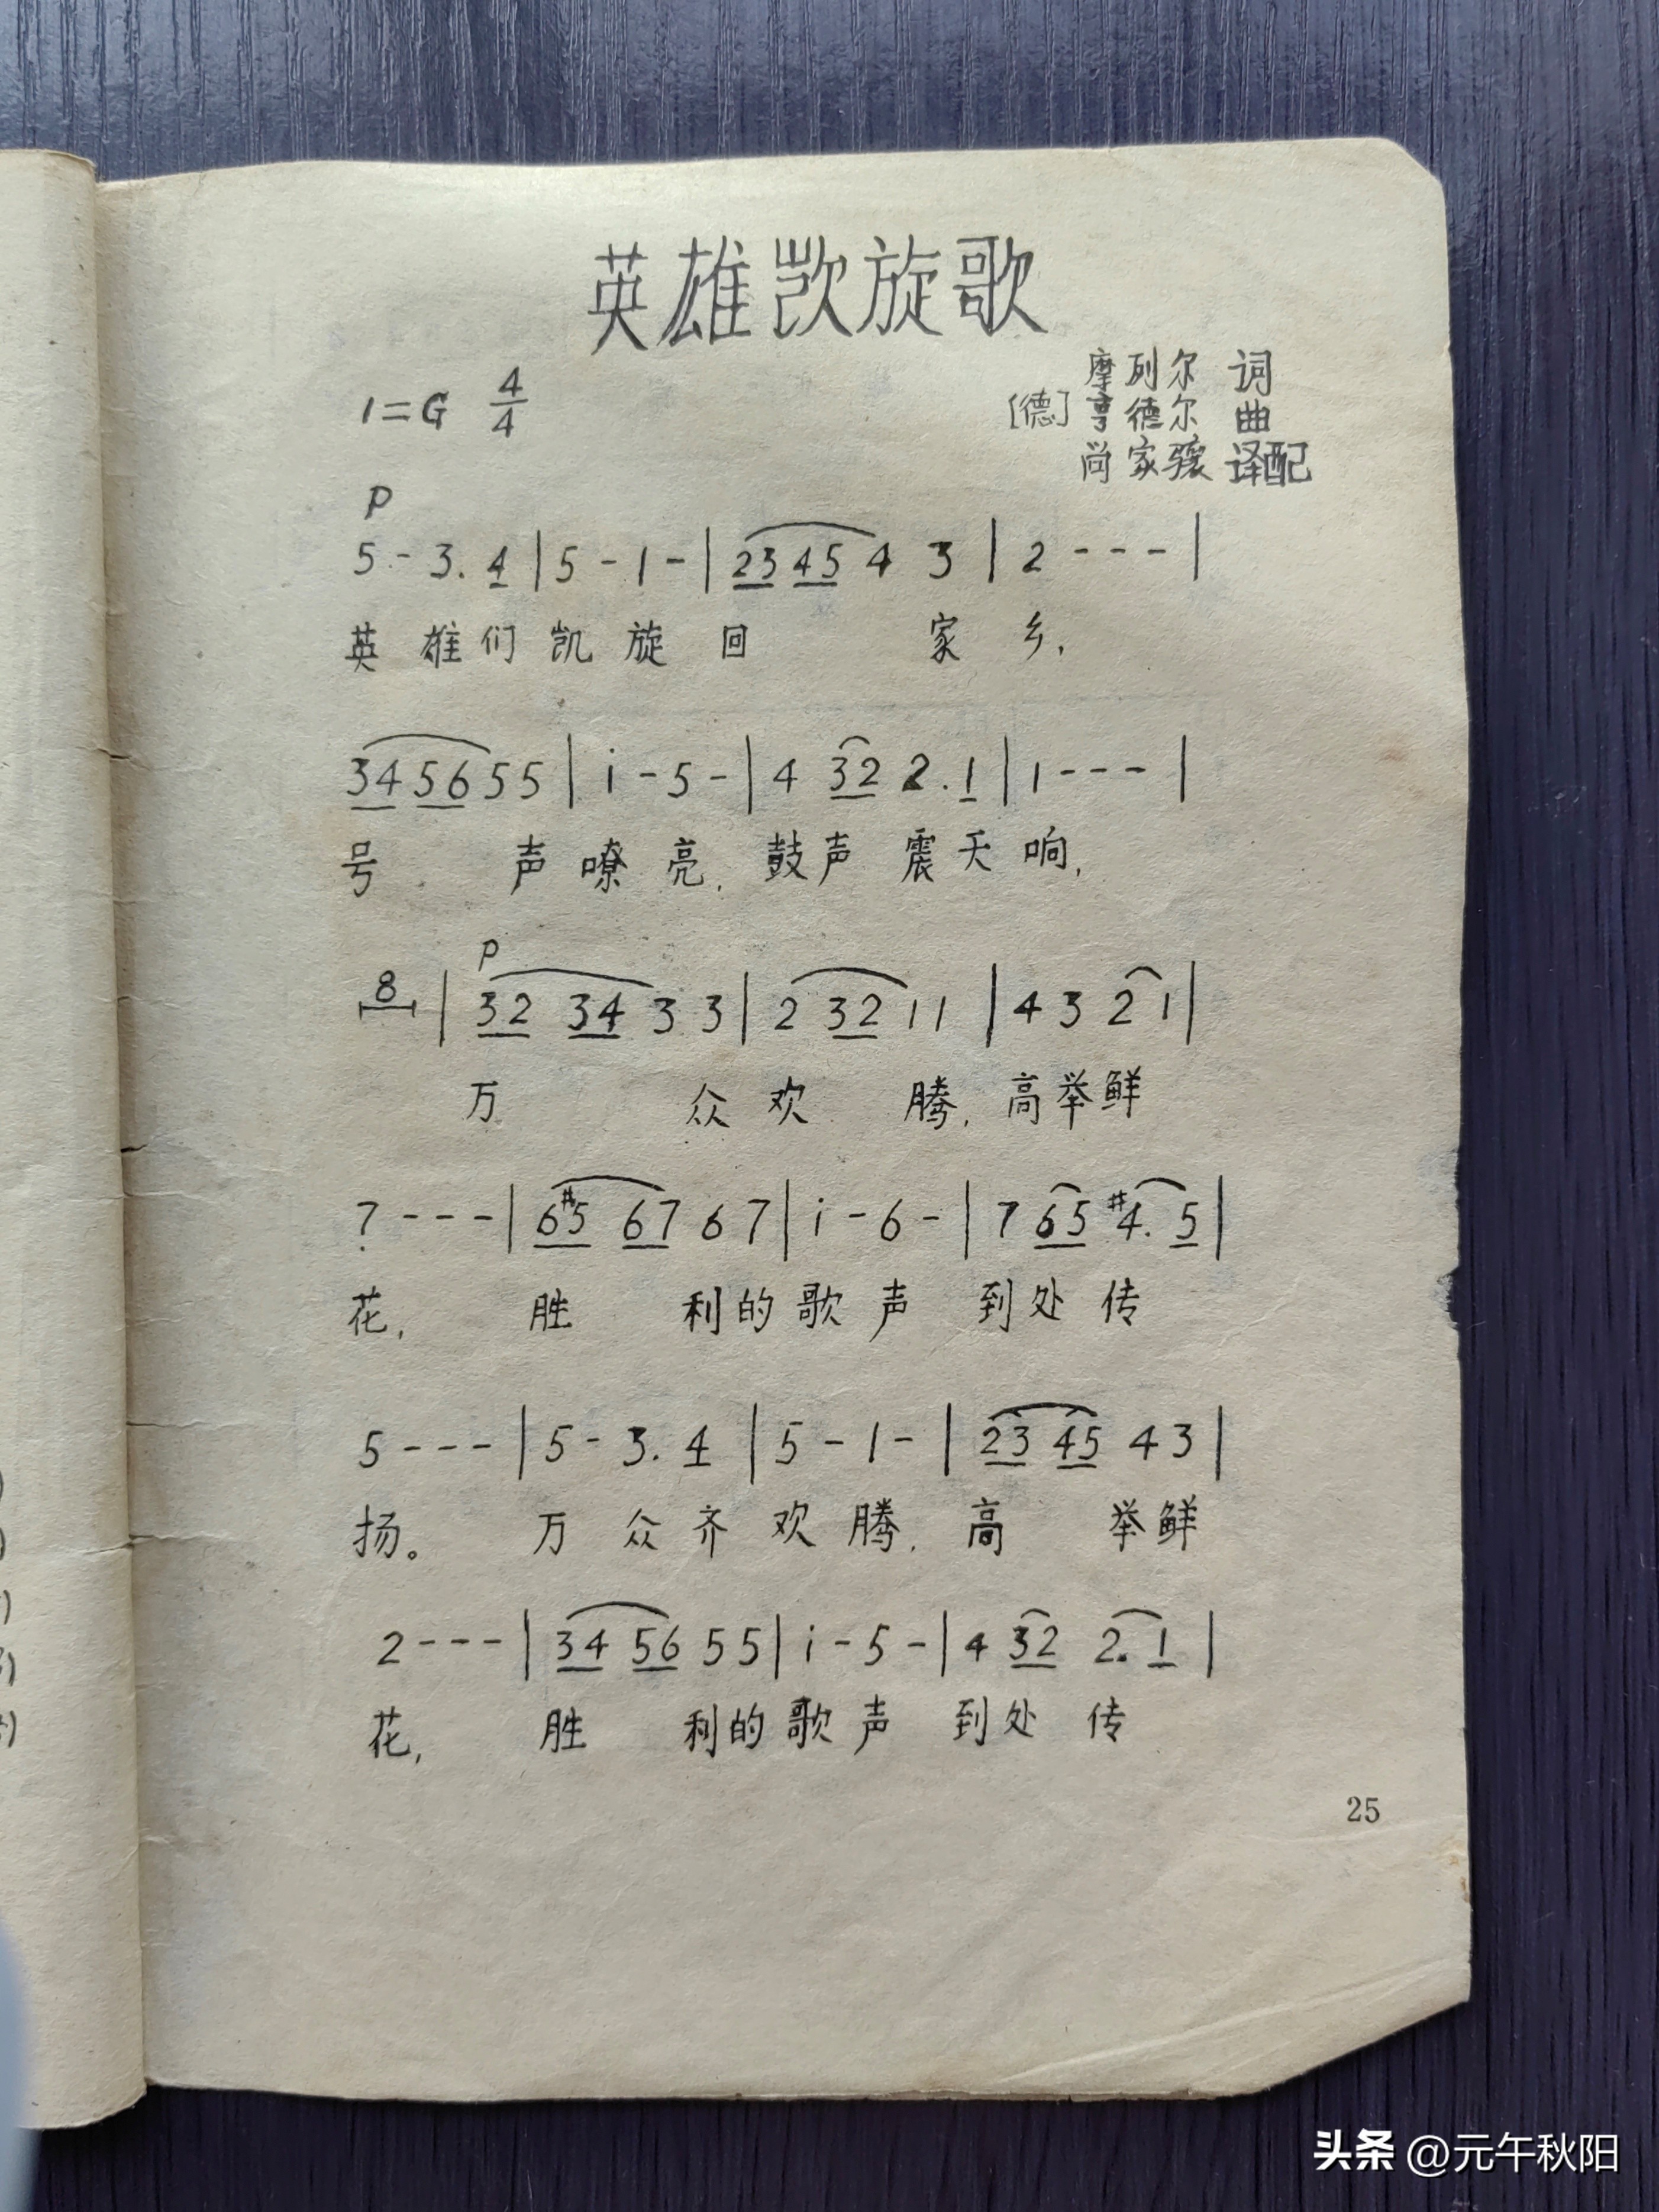 英雄凯旋歌
1=G 4/4
摩列尔 词
[德] 亨德尔 曲
尚家骧 译配
p
5 - 3. 4 | 5 - 1 - | 23 45 4 3 | 2 - - - |
英 雄们 凯 旋 回 家 乡,
34 56 5 5 | i - 5 - | 4 32 2. 1 | 1 - - - |
号 声 嘹 亮, 鼓声 震天 响,
p
8 | 32 34 3 3 | 2 32 1 1 | 4 3 2 1 |
万 众 欢 腾, 高举鲜
7̣ - - - | 6#5 67 6 7 | i - 6 - | 7 65 #4. 5 |
花, 胜 利的 歌 声 到处 传
5 - - - | 5 - 3. 4 | 5 - 1 - | 23 45 4 3 |
扬。 万 众 齐 欢 腾, 高 举鲜
2 - - - | 34 56 5 5 | i - 5 - | 4 32 2. 1 |
花, 胜 利的 歌 声 到处 传
25
头条 @元午秋阳